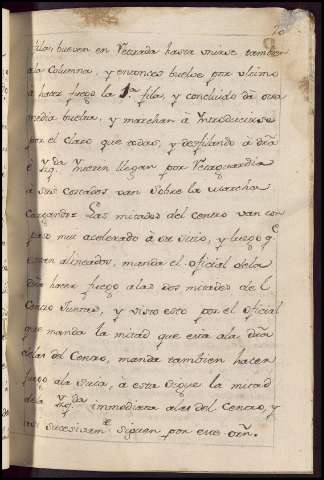 filas, bueven en Retirada hasta unirse tambien
ala Columna, y entonces buelve por ultimo
á hacer fuego la 1.ª fila, y concluido dá otra
media buelta, y marchan á Introducirse
por el claro que todas, y desfilando á dra
é Yzq.da Vienen llegan por Retaguardia
á sus costados van sobre la marcha
Cargando: Las mitades del centro van con
paso mui acelerado á su sitio, y luego q.e
estan alineados, manda el oficial dela
dra hacer fuego alas dos mitades del
Centro Juntas, y visto esto por el oficial
que manda la mitad que está ala dra
delas del Centro, manda tambien hacer
fuego ala suia, á esta sigue la mitad
dela Yzq.da immediata alas del Centro, y
las sucesivam.te siguen por este orn.